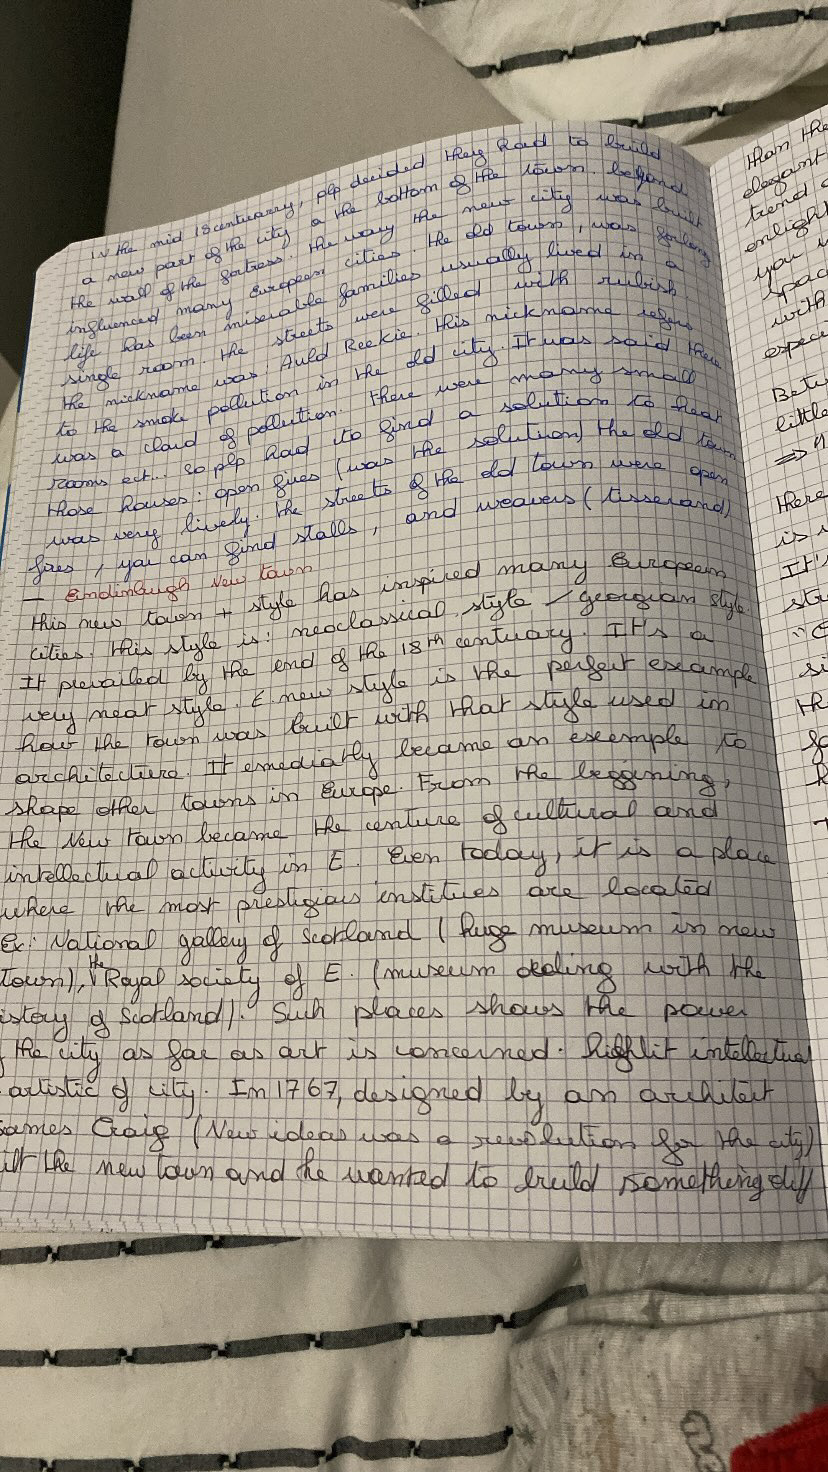 In the mid 18 centuarry, plp decided they had to build
a new part of the city a the bottom of the town. beyond
the wall of the fortress. the way the new city was built
influenced many European cities. the old town, was for long
life has been miserable families usually lived in a
single room. the streets were filled with rubish.
the nickname was: Auld Reekie. this nickname refers
to the smoke pollution in the old city. It was said there
was a cloud of pollution. There were many small
rooms ect... so plp had to find a solution to heat
those houses: open fires (was the solution) the old town
was very lively. the streets of the old town were open
fires, you can find stalls, and weavers (tisserand)
— Eindinburgh New town
this new town + style has inspired many European
cities. this style is: neoclassical style / georgian style.
It prevailed by the end of the 18th centuary. It's a
very neat style. E. new style is the perfect example
how the town was built with that style used in
architecture. It emediatly became an exemple to
shape other towns in Europe. From the beggining,
the New town became the centure of cultural and
intellectual activity in E. Even today, it is a place
where the most prestigious institues are located
Ex: National gallery of Scotland (huge museum in new
town), the Royal society of E. (museum dealing with the
istory of Scotland). Such places shows the power
the city as far as art is concerned. intellectual
artistic of city. In 1767, designed by an architect
James Craig (New ideas was a revolution for the city)
ilt the new town and he wanted to build something diff
than the
elegant
trend
enlight
you
spac
with
expec
Betw
little
=>
there
is
It's
str
"
si
th